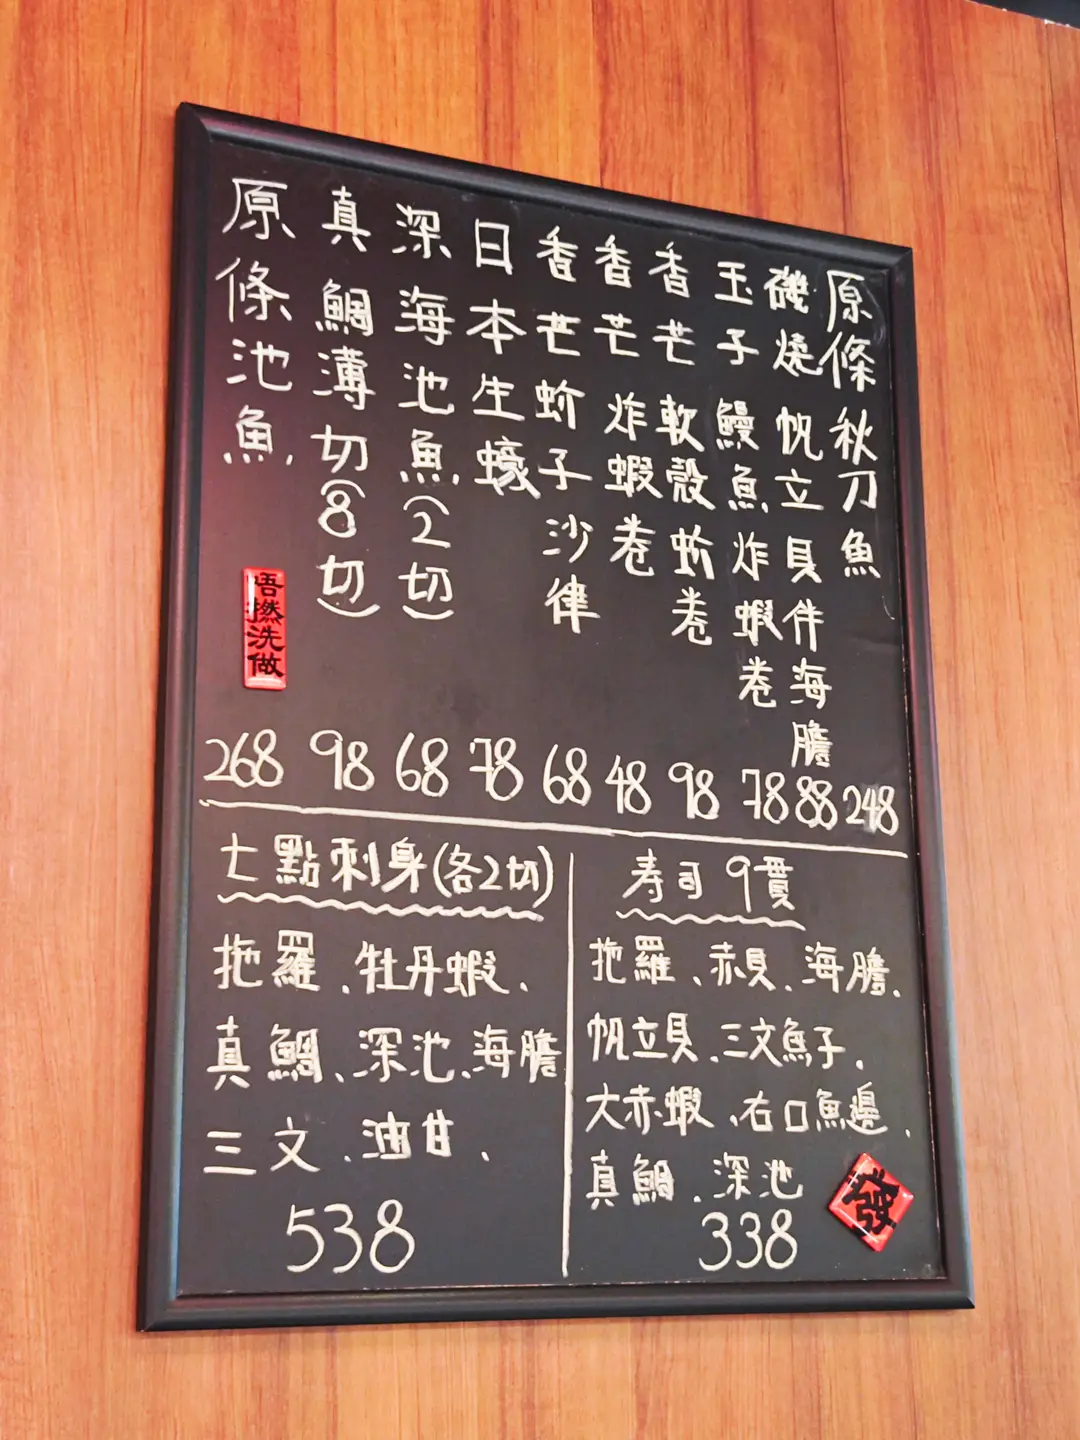 原條秋刀魚 248
磯燒帆立貝伴海膽 88
玉子鰻魚炸蝦卷 78
香芒軟殼蚧卷 98
香芒炸蝦卷 48
香芒蚧子沙律 68
日本生蠔 78
深海池魚(2切) 68
真鯛薄切(8切) 98
原條池魚 268
唔撚洗做
七點刺身(各2切)
拖羅、牡丹蝦、
真鯛、深池、海膽
三文、油甘、
538
寿司9貫
拖羅、赤貝、海膽、
帆立貝、三文魚子、
大赤蝦、右口魚邊、
真鯛、深池
338
發